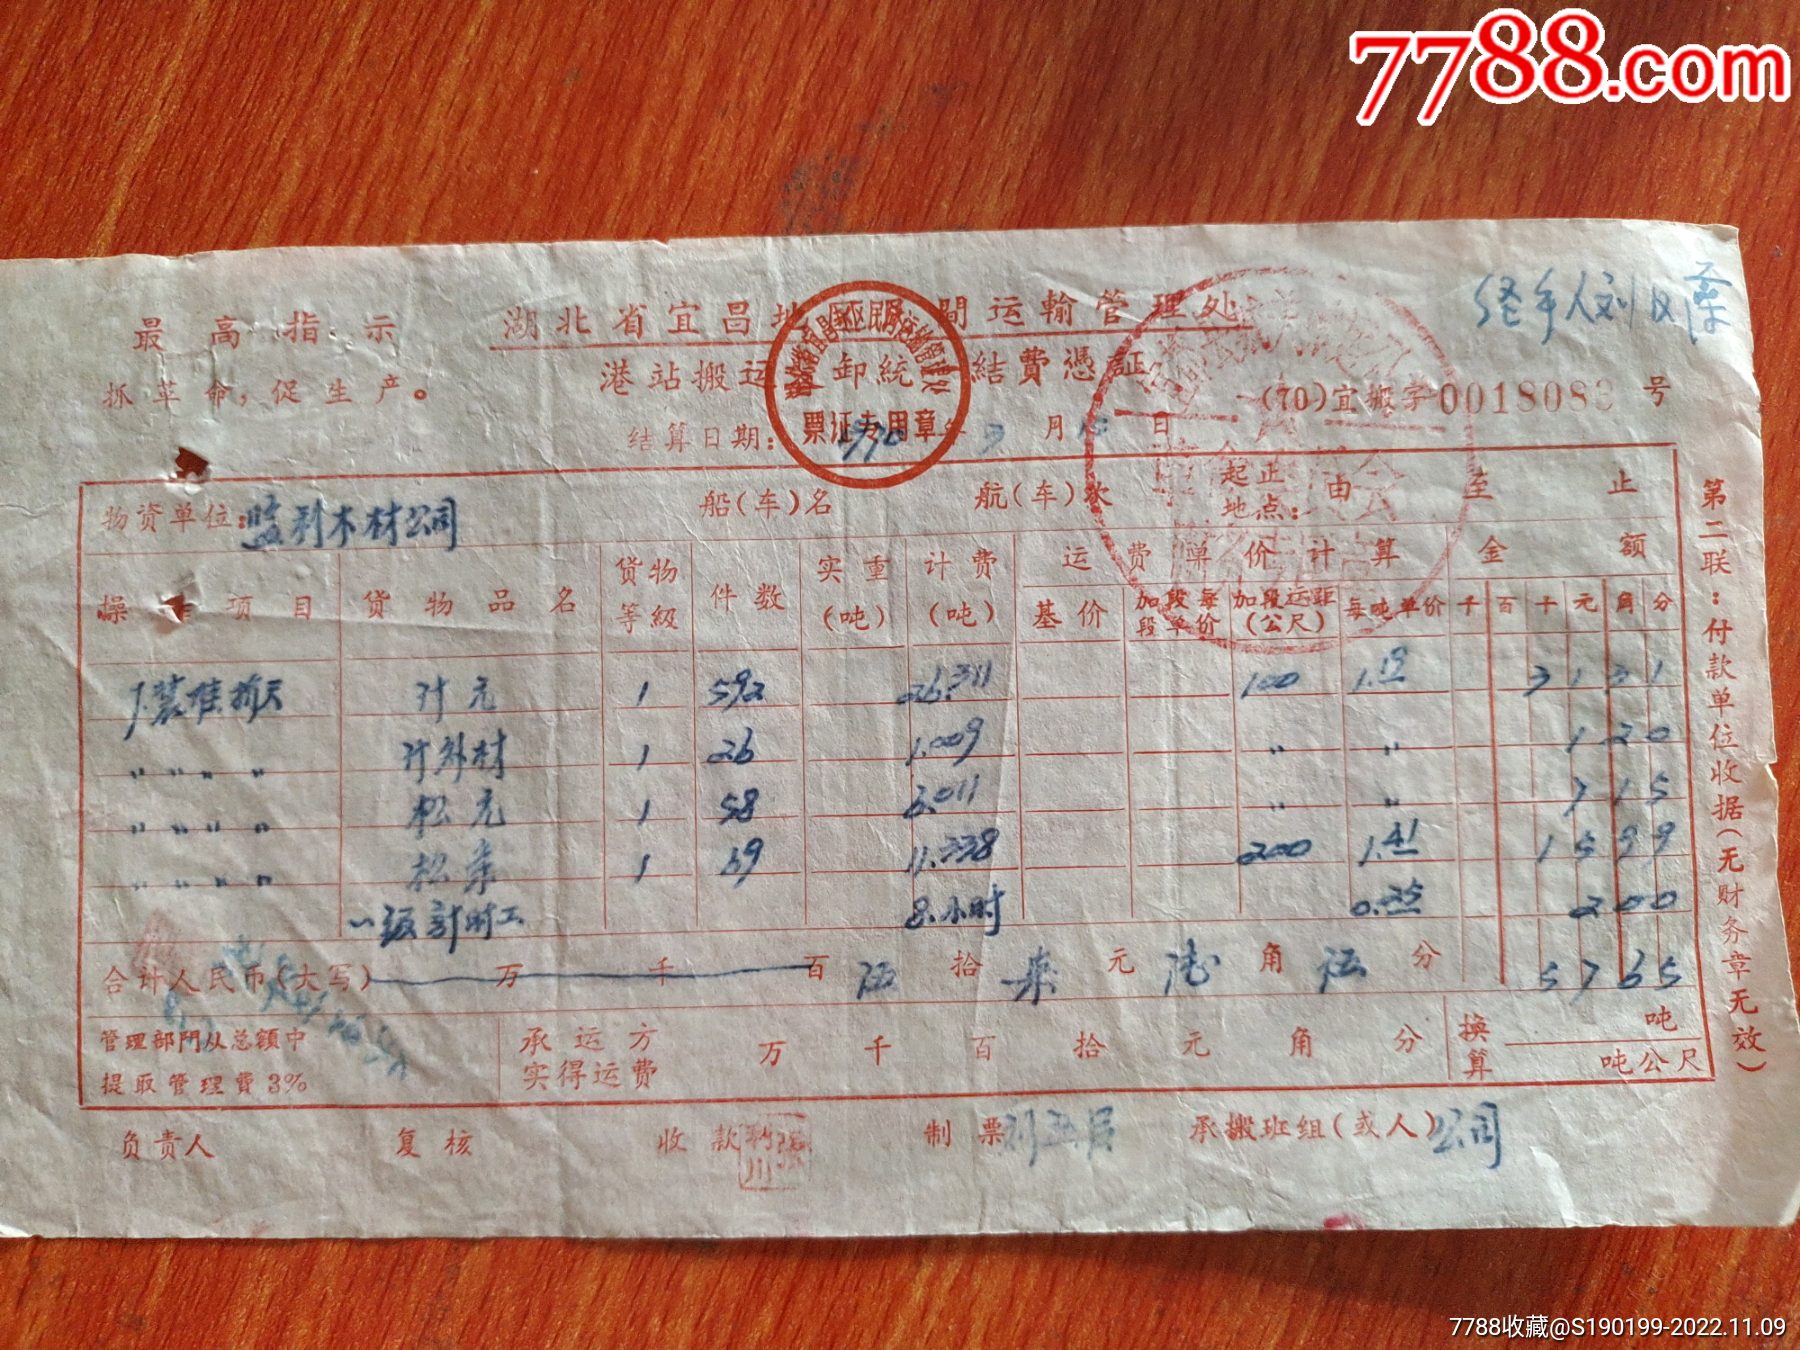 7788.com
最高指示
抓革命，促生产。
湖北省宜昌地区民間运輸管理处
港站搬运 卸統 結費憑証
票证专用章
经手人刘
(70)宜搬字0018083号
结算日期：1970年7月15日
物资单位：监利木材公司 船(车)名 航(车)次 起止地点： 由 至 止
操作项目 货物品名 货物等級 件数 实重(吨) 计费(吨) 运费单价计算 金额
基价 加段每段单价 加段运距(公尺) 每吨单价 千 百 十 元 角 分
下装堆 计元 1 592 26.311 100 1.19 3 1 3 1
〃 〃 〃 〃 计外材 1 26 1.009 〃 〃 1 2 0
〃 〃 〃 〃 松元 1 58 6.011 〃 〃 7 1 5
〃 〃 〃 〃 松条 1 69 11.338 200 1.41 1 5 9 9
一级計时工 8.小时 0.25 2 0 0
合计人民币(大写) 万 千 百 伍 拾 柒 元 陆 角 伍 分 5 7 6 5
管理部門从总額中
提取管理費3%
承运方
实得运费 万 千 百 拾 元 角 分
换算 吨
吨公尺
第二联：付款单位收据(无财务章无效)
负责人 复核 收款 制票 承搬班组(或人)公司
7788收藏@S190199-2022.11.09